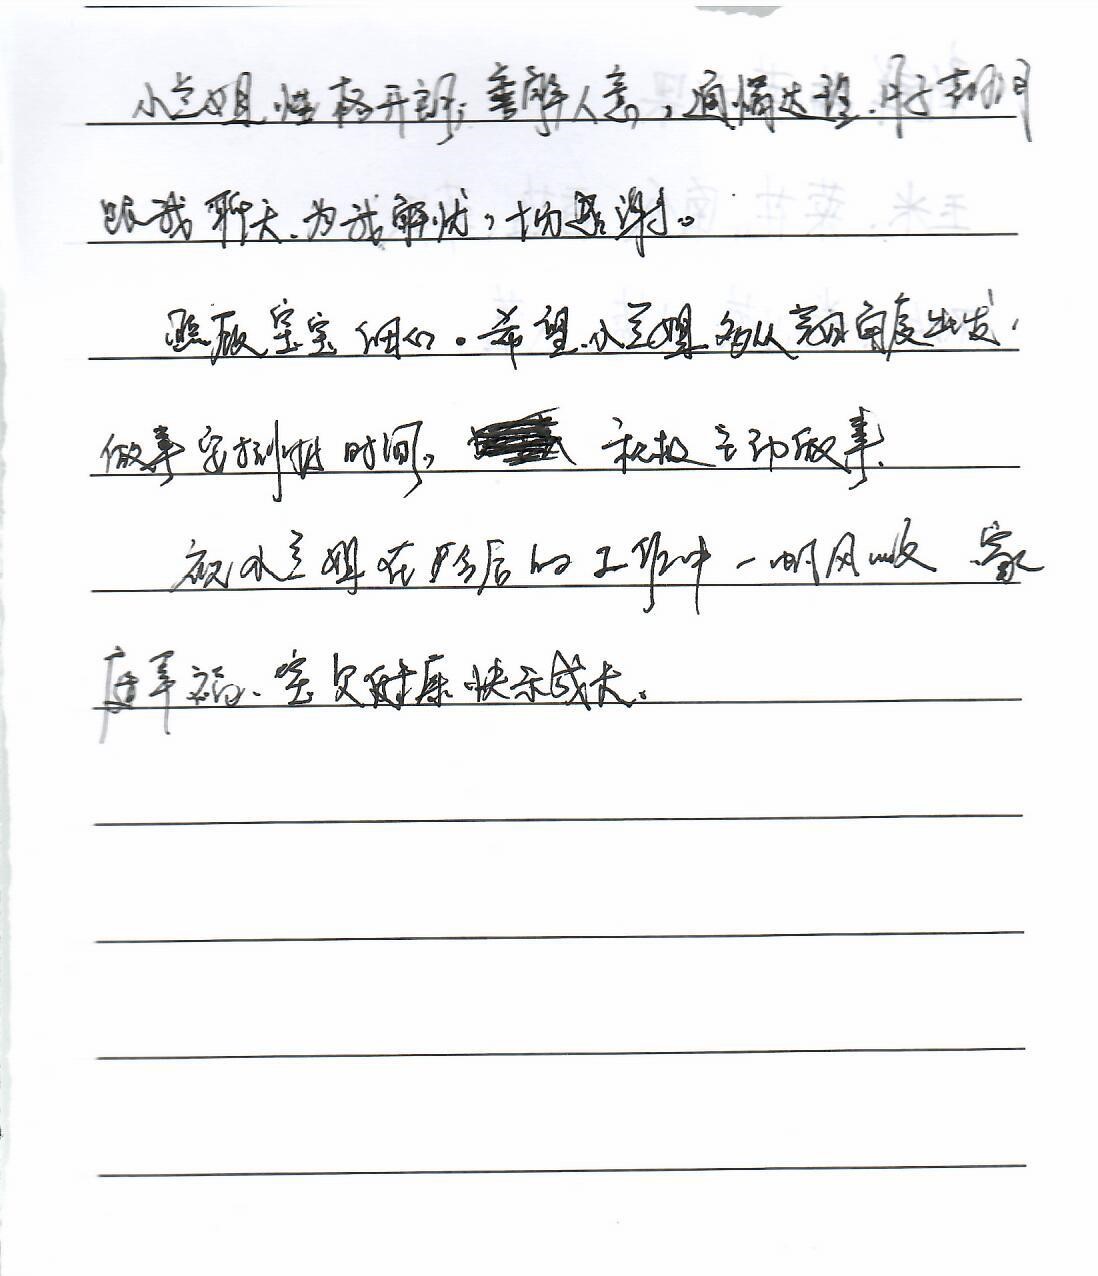 小兰姐性格开朗，善解人意，通情达理，月子期间
跟我聊天、为我解忧，十分感谢。
照顾宝宝细心。希望小兰姐多从宝妈角度出发，
做事安排时间，积极主动做事。
祝小兰姐在今后的工作中一帆风顺 家
庭幸福、宝贝健康快乐成长。